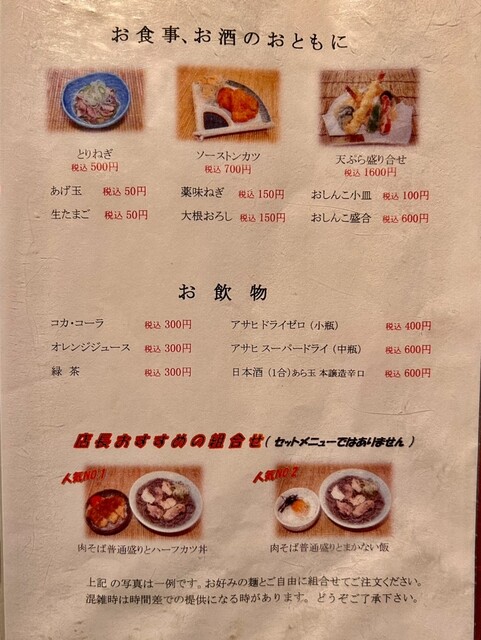 お食事、お酒のおともに
とりねぎ
税込 500円
ソーストンカツ
税込 700円
天ぷら盛り合せ
税込 1600円
あげ玉 税込 50円 薬味ねぎ 税込 150円 おしんこ小皿 税込 100円
生たまご 税込 50円 大根おろし 税込 150円 おしんこ盛合 税込 600円
お飲物
コカ・コーラ 税込 300円 アサヒドライゼロ（小瓶） 税込 400円
オレンジジュース 税込 300円 アサヒ スーパードライ（中瓶） 税込 600円
緑茶 税込 300円 日本酒（1合）あら玉 本醸造辛口 税込 600円
店長おすすめの組合せ（セットメニューではありません）
人気NO1 人気NO 2
肉そば普通盛りとハーフカツ丼 肉そば普通盛りとまかない飯
上記の写真は一例です。お好みの麺とご自由に組合せてご注文ください。
混雑時は時間差での提供になる時があります。どうぞご了承下さい。